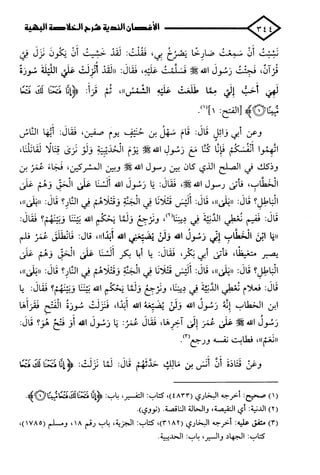 ٣٤٤ الأغصان الندية شرح الخلاصة البهية
نَشِبْتُ أَنْ سَمِعْتُ صَارِخًا يَصْرُخُ بِي، فَقُلْتُ: لَقَدْ خَشِيتُ أَنْ يَكُونَ نَزَلَ فِيَّ
قُرْآنٌ، فَجِئْتُ رَسُولَ اللهِ ﷺ فَسَلَّمْتُ عَلَيْهِ، فَقَالَ: «لَقَدْ أُنْزِلَتْ عَلَيَّ اللَّيْلَةَ سُورَةٌ
لَهِيَ أَحَبُّ إِلَيَّ مِمَّا طَلَعَتْ عَلَيْهِ الشَّمْسُ»، ثُمَّ قَرَأَ: ﴿إِنَّا فَتَحْنَا لَكَ فَتْحًا
مُّبِينًا ۝﴾ [الفتح: ١](١).
وَعَنْ أَبِي وَائِلٍ، قَالَ: قَامَ سَهْلُ بن حُنَيْفٍ يوم صفين، فَقَالَ: أَيُّهَا النَّاسُ
اتَّهِمُوا أَنْفُسَكُمْ فَإِنَّا كُنَّا مَعَ رَسُولِ اللهِ ﷺ يَوْمَ الْحُدَيْبِيَةِ وَلَوْ نَرَى قِتَالًا لَقَاتَلْنَا،
وذلك في الصلح الذي كان بين رسول الله ﷺ وبين المشركين، فَجَاءَ عُمَرُ بن
الْخَطَّابِ، فأتى رسول الله ﷺ، فَقَالَ: يَا رَسُولَ اللهِ أَلَسْنَا عَلَى الْحَقِّ وَهُمْ عَلَى
الْبَاطِلِ؟ قَالَ: «بَلَى»، قَالَ: أَلَيْسَ قَتْلَانَا فِي الْجَنَّةِ وَقَتْلَاهُمْ فِي النَّارِ؟ قَالَ: «بَلَى»،
قَالَ: ففيم نُعْطِي الدَّنِيَّةَ فِي دِينِنَا(٢)، وَنَرْجِعُ وَلَمَّا يَحْكُمِ اللهُ بَيْنَنَا وَبَيْنَهُمْ؟ فَقَالَ:
«يَا ابْنَ الْخَطَّابِ إِنِّي رَسُولُ اللهِ وَلَنْ يُضَيِّعَنِي اللهُ أَبَدًا»، قال: فَانْطَلَقَ عُمَرُ فلم
يصبر متغيظًا، فأتى أبي بَكْرٍ، فَقَالَ: يا أبا بكر أَلَسْنَا عَلَى الْحَقِّ وَهُمْ عَلَى
الْبَاطِلِ؟ قَالَ: بَلَى، قَالَ: أَلَيْسَ قَتْلَانَا فِي الْجَنَّةِ وَقَتْلَاهُمْ فِي النَّارِ؟ قَالَ: بَلَى،
قَالَ: فعلام نُعْطِي الدَّنِيَّةَ فِي دِينِنَا، ونرجع وَلَمَّا يَحْكُمِ اللهُ بَيْنَنَا وَبَيْنَهُمْ؟ فَقَالَ: يا
ابن الخطاب إِنَّهُ رَسُولُ اللهِ وَلَنْ يُضَيِّعَهُ اللهُ أَبَدًا، فَنَزَلَتْ سُورَةُ الْفَتْحِ فَقَرَأَهَا
رَسُولُ اللهِ ﷺ عَلَى عُمَرَ إِلَى آخِرِهَا، فَقَالَ عُمَرُ: يَا رَسُولَ اللهِ أَوَ فَتْحٌ هُوَ؟ قَالَ:
«نَعَمْ»، فطابت نفسه ورجع(٣).
وَعَنْ قَتَادَةَ أَنَّ أَنَسَ بْنَ مَالِكٍ حَدَّثَهُمْ قَالَ: لَمَّا نَزَلَتْ: ﴿إِنَّا فَتَحْنَا لَكَ
(١) صحيح: أخرجه البخاري (٤٨٣٣)، كتاب: التفسير، باب: ﴿إِنَّا فَتَحْنَا لَكَ فَتْحًا مُّبِينًا ۝﴾.
(٢) الدنية: أي النقيصة، والحالة الناقصة. (نووي).
(٣) متفق عليه: أخرجه البخاري (٣١٨٢)، كتاب: الجزية، باب: رقم ١٨، ومسلم (١٧٨٥)،
كتاب: الجهاد والسير، باب: الحديبية.